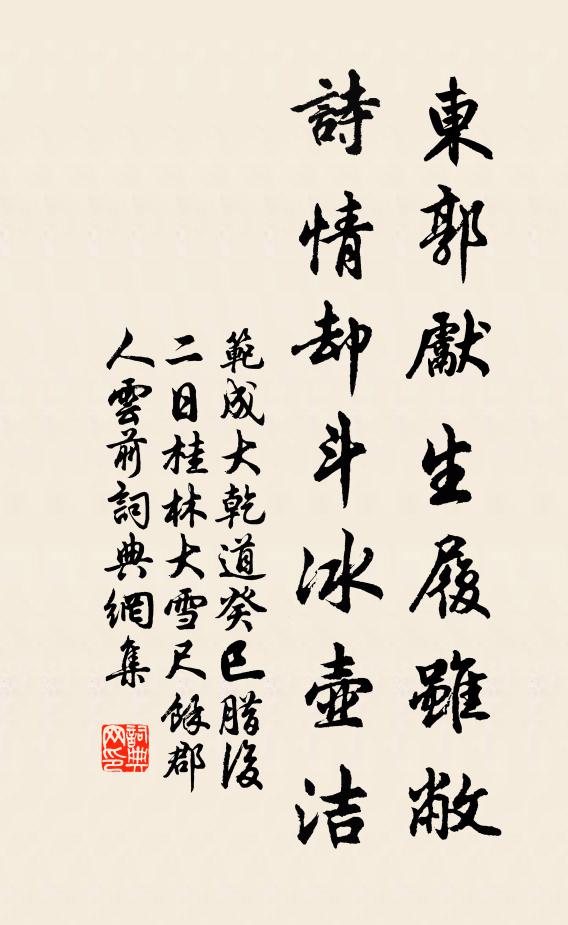 東郭獻生履雖敝
詩情却斗冰壺洁
範成大乾道癸巳腊後
二日桂林大雪尺餘郡
人雲前詞典網集
詞典网印